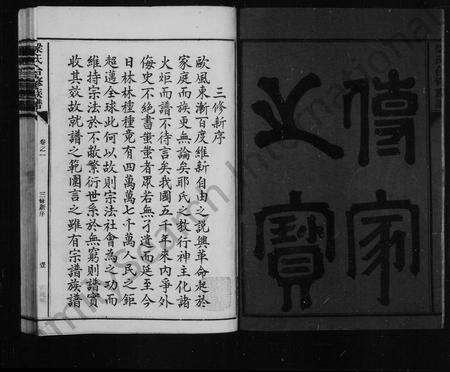 傳家
之寶
三修新序
歐風東漸百度維新自由之說興革命起於
家庭而族更無論矣耶氏之教行神主化諸
火炬而譜不待言矣我國五千年來內爭外
侮史不絕書蚩蚩者眾若無孑遺而延至今
日林林種種竟有四萬萬七千萬人民之鉅
超邁全球此何以故則宗法社會為之功而
維持宗法於不敝繁衍世系於無窮則譜實
收其效故就譜之範圍言之雖有宗譜族譜
卷之一
三修新序
壹